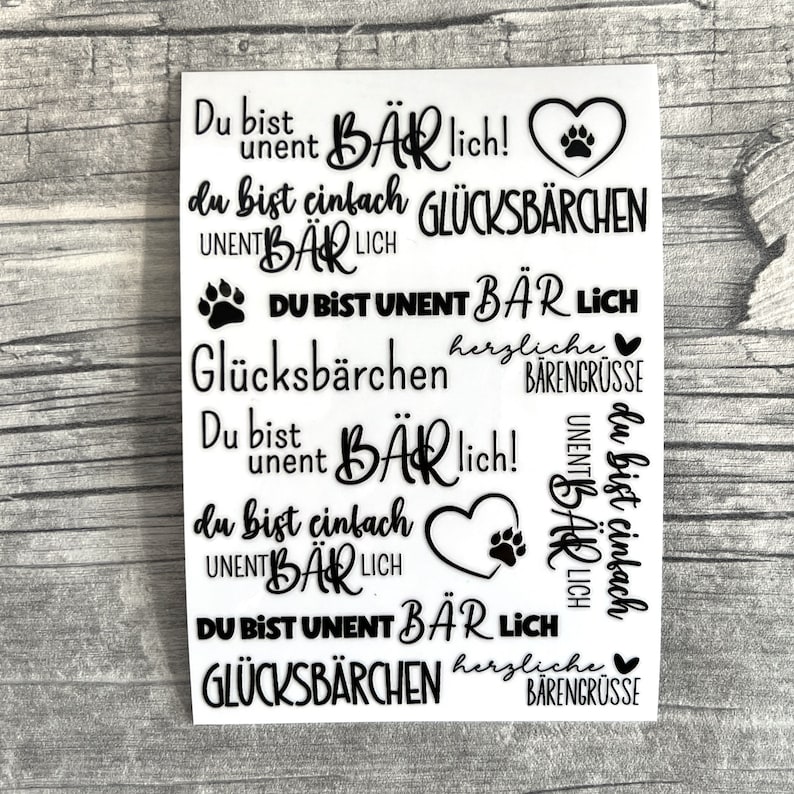 Du bist
unent BÄR lich!
du bist einfach
UNENT BÄR LICH
GLÜCKSBÄRCHEN
DU BiST UNENT BÄR LiCH
Glücksbärchen
herzliche
BÄRENGRÜSSE
Du bist
unent BÄR lich!
du bist einfach
UNENT BÄR LICH
du bist einfach
UNENT BÄR LICH
DU BiST UNENT BÄR LiCH
GLÜCKSBÄRCHEN
herzliche
BÄRENGRÜSSE